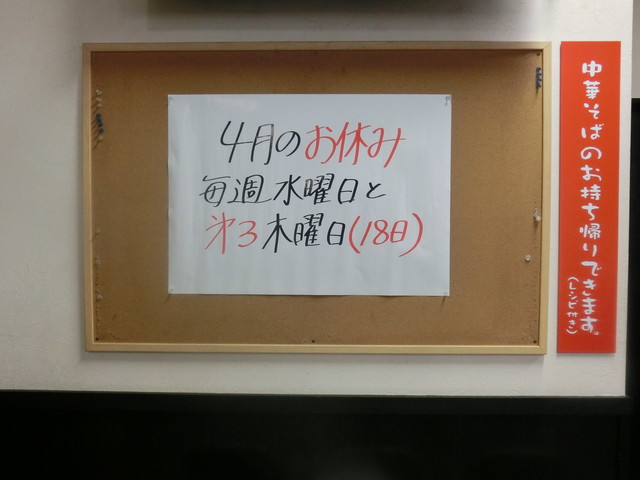 4月のお休み
毎週水曜日と
第3木曜日(18日)
中華そばのお持ち帰りできます。
(レシピ付き)